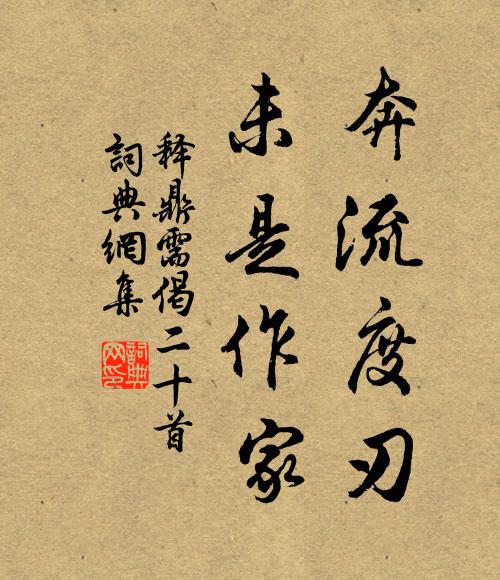 奔流度刃
未是作家
释鼎需偈二十首
詞典網集
詞典网印